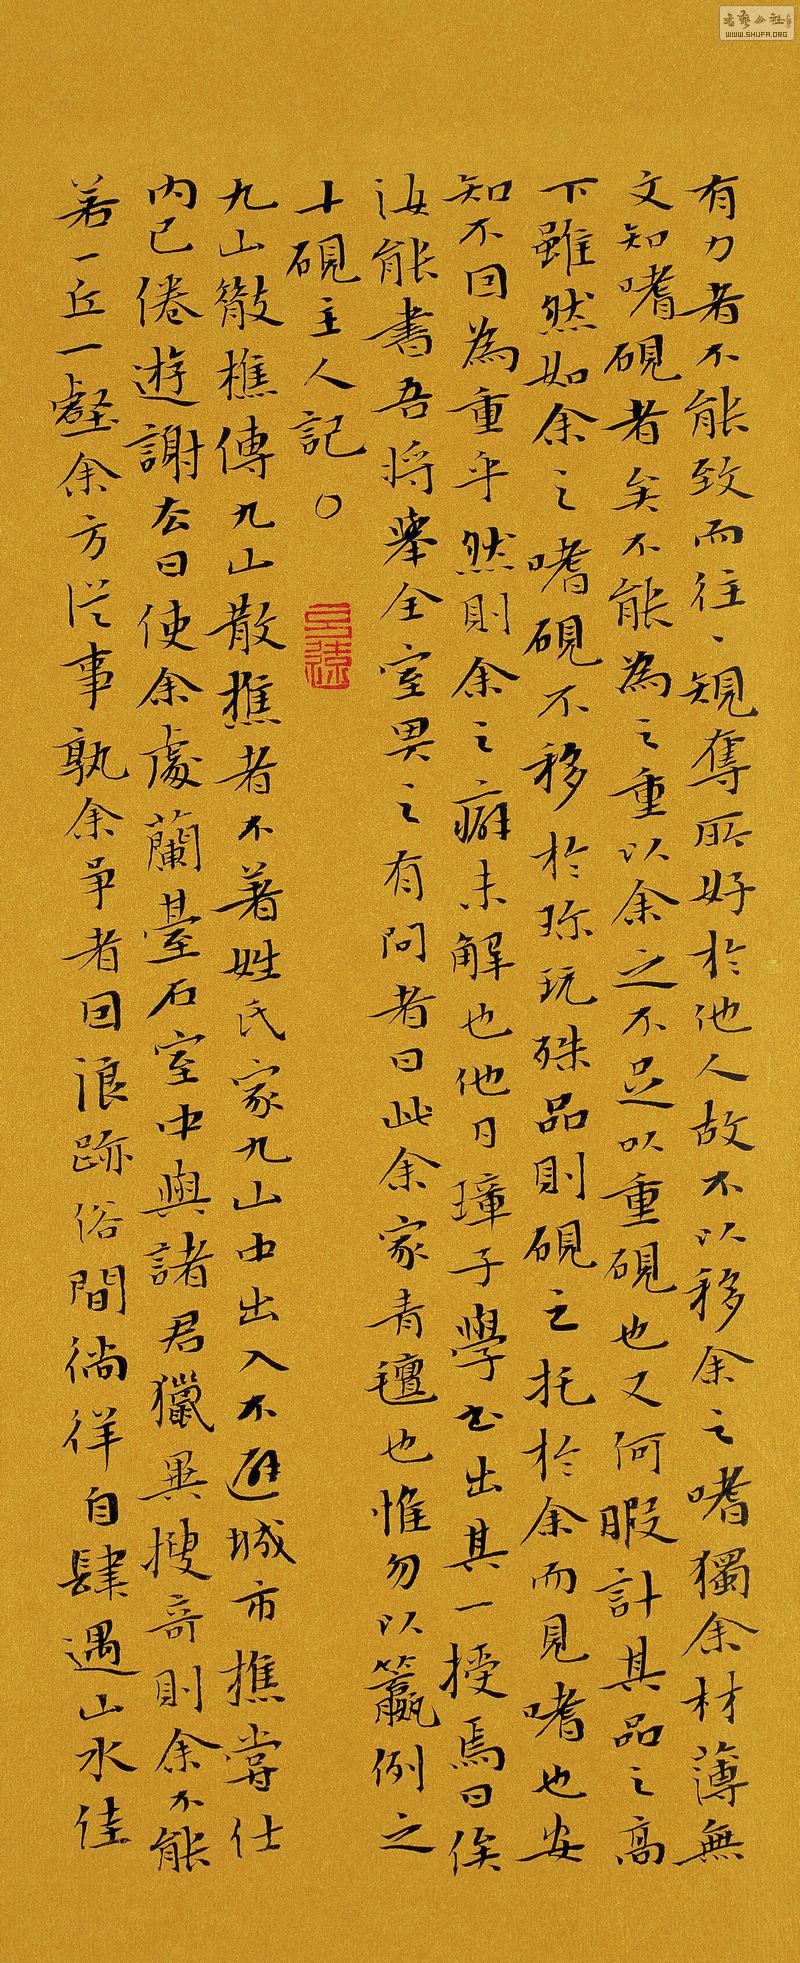 有力者不能致而往々覬奪所好於他人故不以移余之嗜獨余材薄無
文知嗜硯者矣不能為之重以余之不足以重硯也又何暇計其品之高
下雖然如余之嗜硯不移於珎玩殊品則硯之托於余而見嗜也安
知不回為重乎然則余之癖未解也他日璋子學書出其一授焉曰俟
汝能書吾将舉全室畀之有問者曰此余家青氊也惟勿以籯例之
十硯主人記○
九山散樵傳九山散樵者不著姓氏家九山中出入不避城市樵嘗仕
内已倦遊謝去曰使余處蘭臺石室中與諸君獵異搜奇則余不能
若一丘一壑余方従事孰余爭者回浪跡俗間徜徉自肆遇山水佳
WWW.SHUFA.ORG